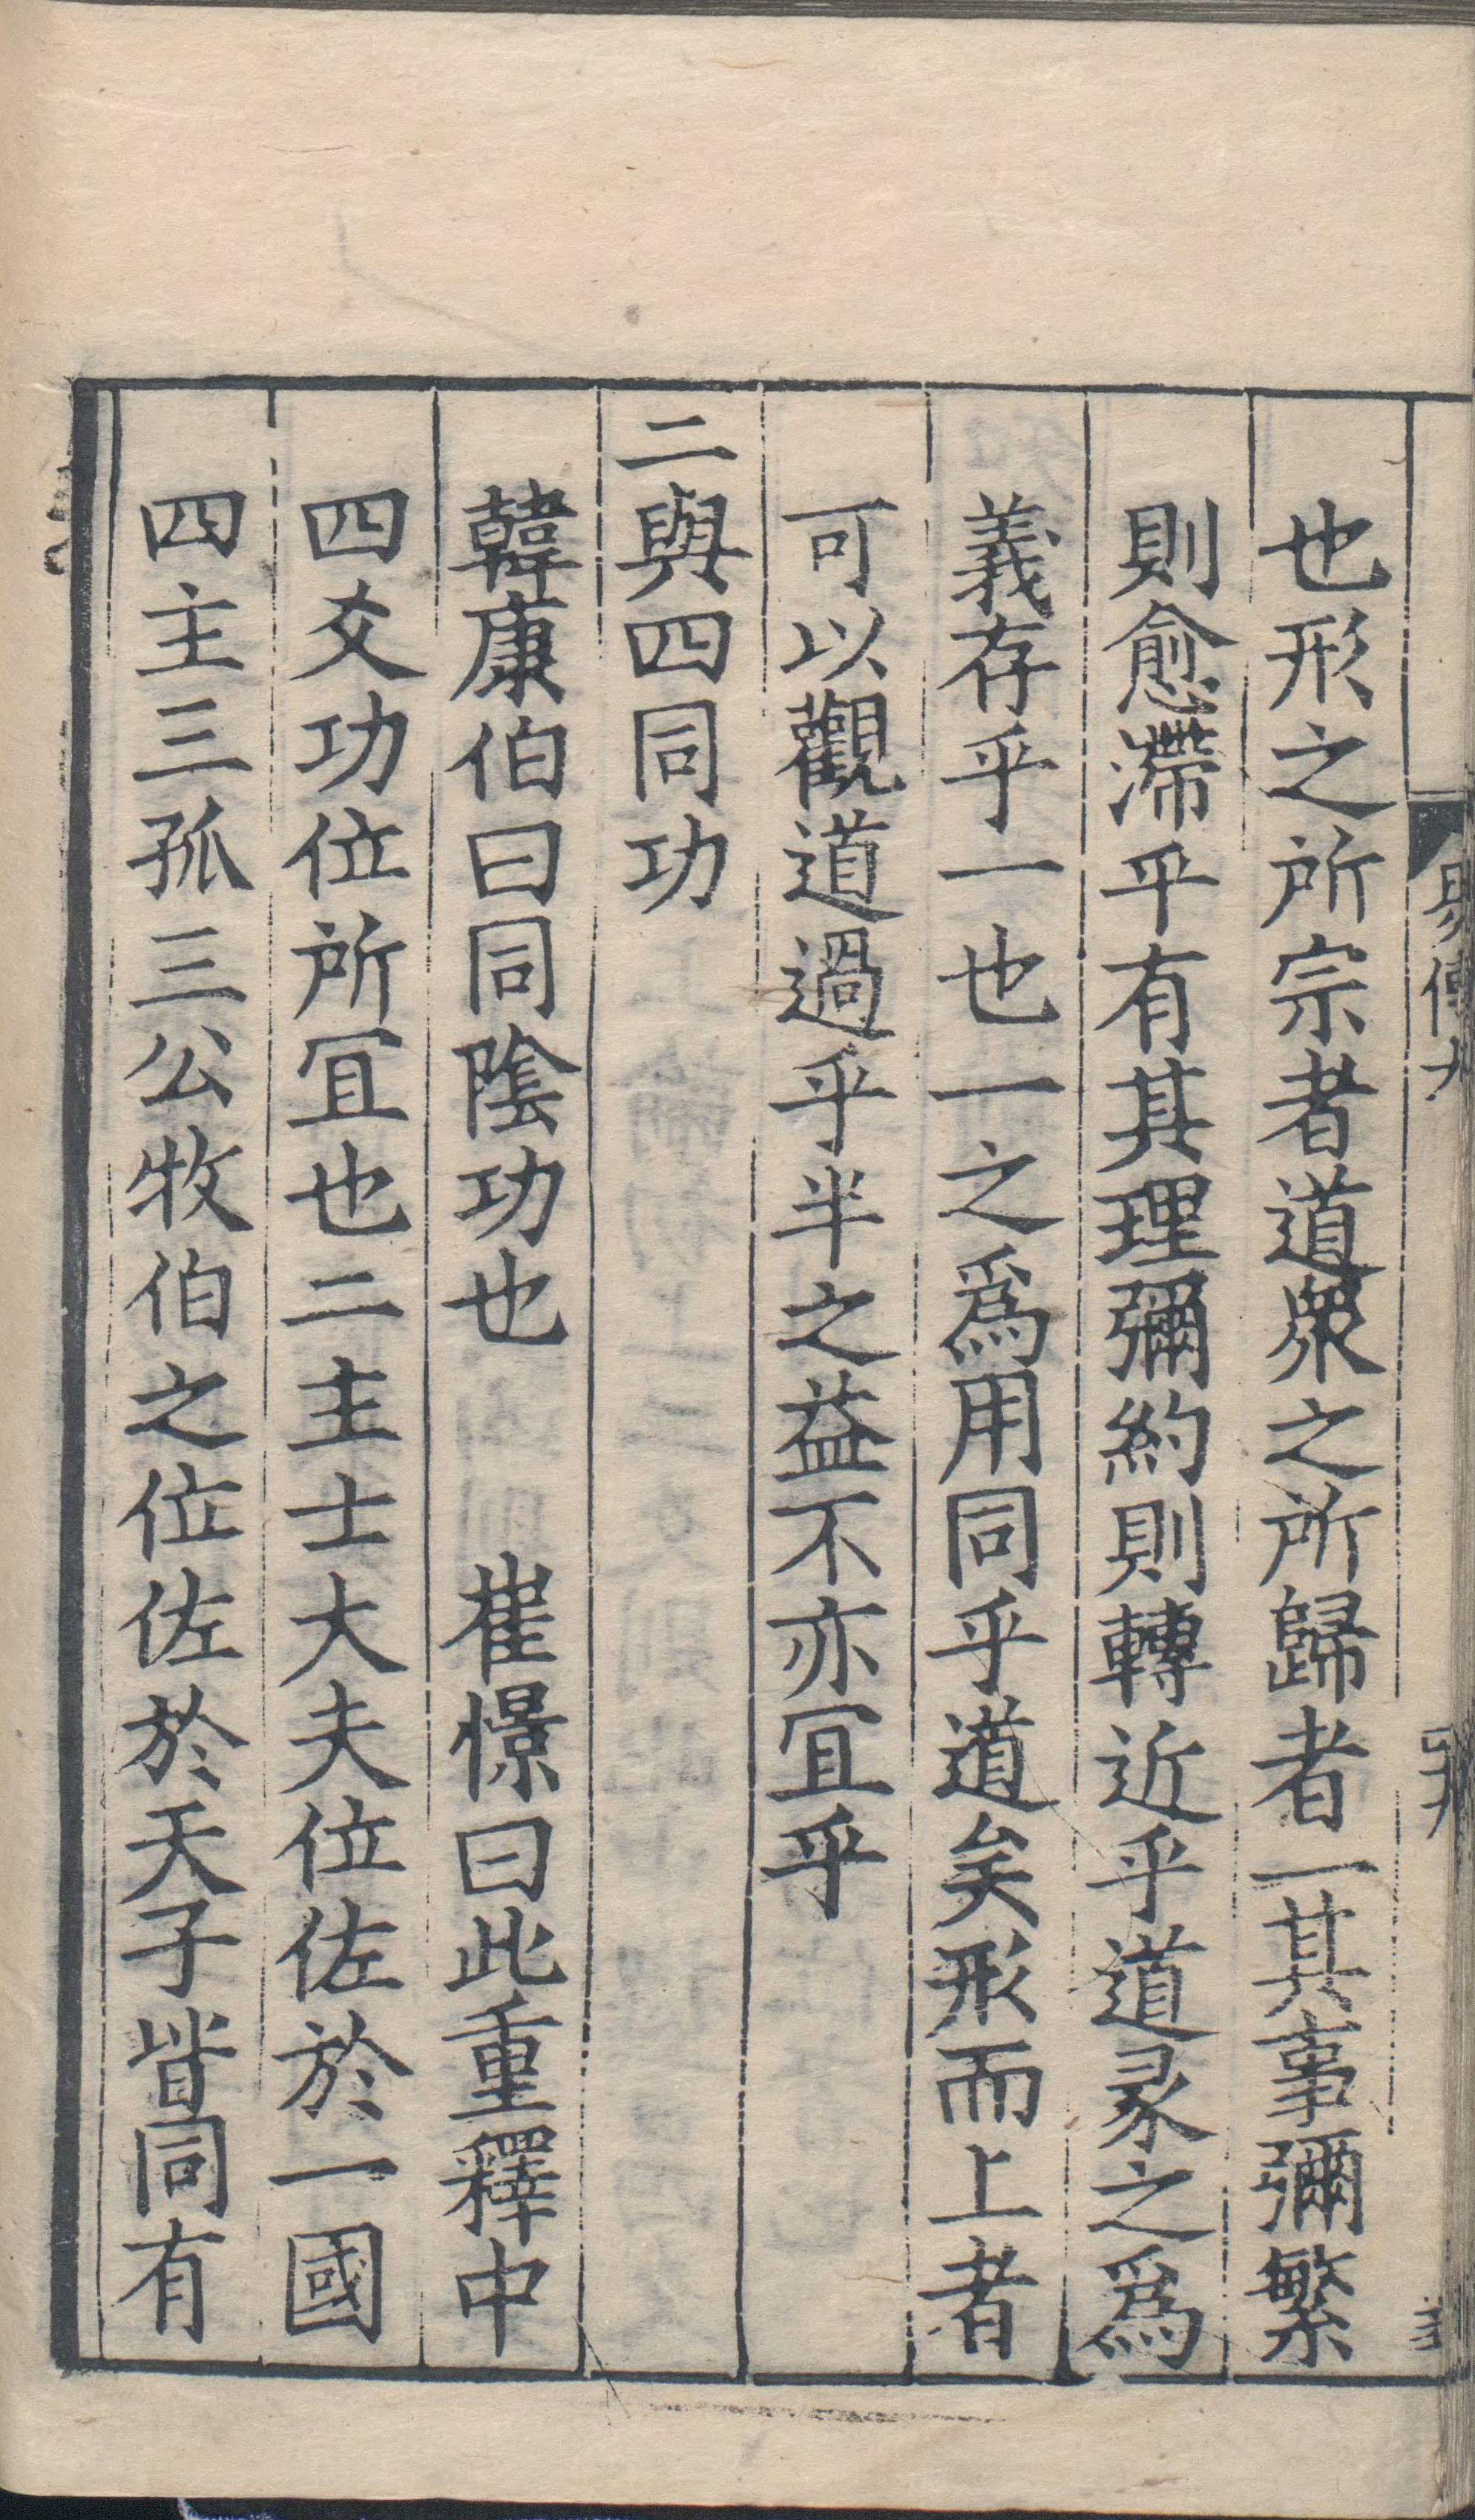 易傳九
也形之所宗者道衆之所歸者一其事彌繁
則愈滯乎有其理彌約則轉近乎道彖之爲
義存乎一也一之爲用同乎道矣形而上者
可以觀道過乎半之益不亦宜乎
二與四同功
韓康伯曰同陰功也　崔憬曰此重釋中
四爻功位所宜也二主士大夫位佐於一國
四主三孤三公牧伯之位佐於天子皆同有